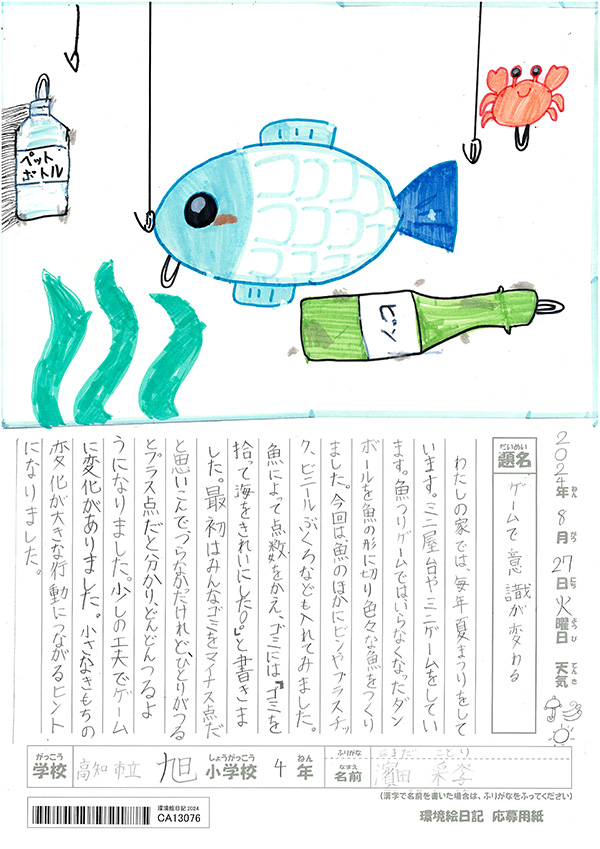 ペット
ボトル
ビン
2024年ねん 8月がつ 27日にち 火曜日ようび 天気てんき
だいめい
題名
ゲームで意識が変わる
わたしの家では、毎年夏まつりをして
います。ミニ屋台やミニゲームをしてい
ます。魚つりゲームではいらなくなったダン
ボールを魚の形に切り色々な魚をつくり
ました。今回は魚のほかにビンやプラスチッ
ク、ビニールぶくろなども入れてみました。
魚によって点数をかえ、ゴミには『ゴミを
拾って海をきれいにした○。』と書きま
した。最初はみんなゴミをマイナス点だ
と思いこんでつらなかったけれど、ひとりがつる
とプラス点だと分かり、どんどんつるよ
うになりました。少しの工夫でゲーム
に変化がありました。小さなきもちの
変化が大きな行動につながるヒント
になりました。
がっこう
学校
高知市立 旭
しょうがっこう
小学校
4
ねん
年
ふりがな
はまだ ことり
なまえ
名前
濵田
(漢字で名前を書いた場合は、ふりがなをふってください)
環境絵日記2024
CA13076
環境絵日記 応募用紙